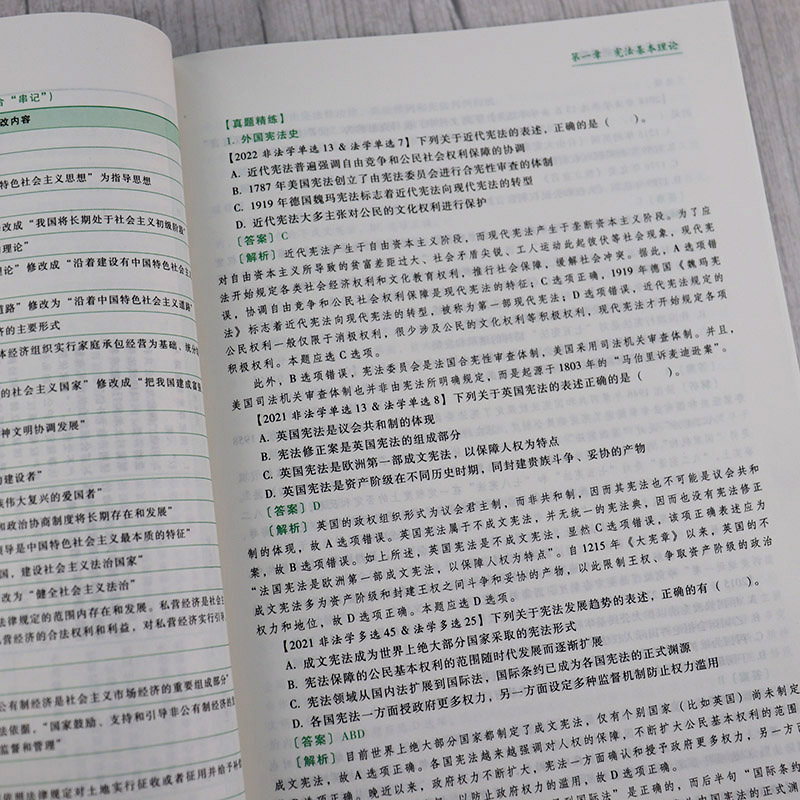 含“串记”）
改内容
特色社会主义思想”为指导思想
修改成“我国将长期处于社会主义初级阶段”
理论”
理论”修改成“沿着建设有中国特色社会主义
道路”修改为“沿着中国特色社会主义道路”
济的主要形式
体经济组织实行家庭承包经营为基础、统分
的社会主义国家”修改成“把我国建成富强
神文明协调发展”
的建设者”
族伟大复兴的爱国者”
和政治协商制度将长期存在和发展”
领导是中国特色社会主义最本质的特征”
国，建设社会主义法治国家”
改为“健全社会主义法治”
法律规定的范围内存在和发展。私营经济是社会主
营经济的合法权利和利益，对私营经济实行引导、
公有制经济是社会主义市场经济的重要组成部分”
法依据，“国家鼓励、支持和引导非公有制经济的发
监督和管理”
依照法律规定对土地实行征收或者征用并给予补偿
第一章 宪法基本理论
【真题精练】
1. 外国宪法史
【2022 非法学单选 13 & 法学单选 7】下列关于近代宪法的表述，正确的是（ ）。
A. 近代宪法普遍强调自由竞争和公民社会权利保障的协调
B. 1787 年美国宪法创立了由宪法委员会进行合宪性审查的体制
C. 1919 年德国魏玛宪法标志着近代宪法向现代宪法的转型
D. 近代宪法大多主张对公民的文化权利进行保护
［答案］C
［解析］近代宪法产生于自由资本主义阶段，而现代宪法产生于垄断资本主义阶段。为了应
对自由资本主义所导致的贫富差距过大、社会矛盾尖锐、工人运动此起彼伏等社会现象，现代宪
法开始规定各类社会经济权利和文化教育权利，推行社会保障，缓解社会冲突。据此，A 选项错
误，协调自由竞争和公民社会权利保障是现代宪法的特征；C 选项正确，1919 年德国《魏玛宪
法》标志着近代宪法向现代宪法的转型，被称为第一部现代宪法；D 选项错误，近代宪法规定的
公民权利一般仅限于消极权利，很少涉及公民的文化权利等积极权利，现代宪法才开始规定各项
积极权利。本题应选 C 选项。
此外，B 选项错误，宪法委员会是法国合宪性审查体制，美国采用司法机关审查体制。并且，
美国司法机关审查体制也并非由宪法所明确规定，而是起源于 1803 年的“马伯里诉麦迪逊案”。
【2021 非法学单选 13 & 法学单选 8】下列关于英国宪法的表述正确的是（ ）。
A. 英国宪法是议会共和制的体现
B. 宪法修正案是英国宪法的组成部分
C. 英国宪法是欧洲第一部成文宪法，以保障人权为特点
D. 英国宪法是资产阶级在不同历史时期，同封建贵族斗争、妥协的产物
［答案］D
［解析］英国的政权组织形式为议会君主制，而非共和制，因而其宪法也不可能是议会共和
制的体现，故 A 选项错误。英国宪法属于不成文宪法，并无统一的宪法典，因而也没有宪法修正
案，故 B 选项错误。如上所述，英国宪法是不成文宪法，显然 C 选项错误，该项正确表述应为
“法国宪法是欧洲第一部成文宪法，以保障人权为特点”。自 1215 年《大宪章》以来，英国的不
成文宪法多为资产阶级和封建王权之间斗争和妥协的产物，以此限制王权、争取资产阶级的政治
权力和地位，故 D 选项正确。本题应选 D 选项。
【2021 非法学多选 45 & 法学多选 25】下列关于宪法发展趋势的表述，正确的有（ ）。
A. 成文宪法成为世界上绝大部分国家采取的宪法形式
B. 宪法保障的公民基本权利的范围随时代发展而逐渐扩展
C. 宪法领域从国内法扩展到国际法，国际条约已成为各国宪法的正式渊源
D. 各国宪法一方面授政府更多权力，另一方面设定多种监督机制防止权力滥用
［答案］ABD
［解析］目前世界上绝大部分国家都制定了成文宪法，仅有个别国家（比如英国）尚未制定
成文宪法，故 A 选项正确。各国宪法越来越强调对人权的保障，不断扩大公民基本权利的范围
选项正确。晚近以来，政府权力不断扩大，宪法一方面确认和授予政府更多权力，另一方面
以防止政府权力的滥用，故 D 选项正确。
到国际法”是正确的，而后半句“国际条约
宪法的正式渊源